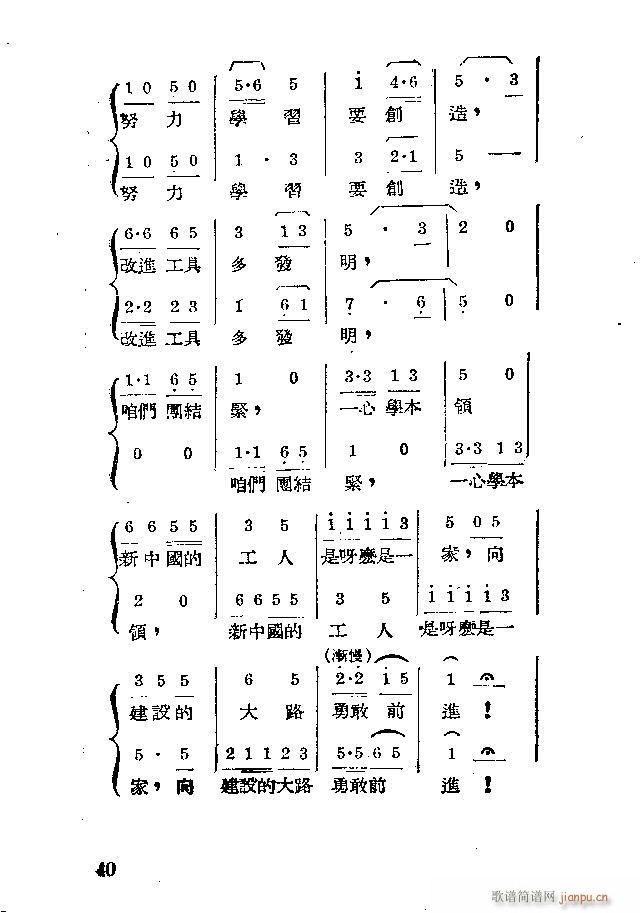 1 0 5 0 5·6 5 i 4·6 5 · 3
努 力 學 習 要 創 造，
1 0 5 0 1 · 3 3 2·1 5 —
努 力 學 習 要 創 造，
6·6 6 5 3 1 3 5 · 3 2 0
改進 工具 多 發 明，
2·2 2 3 1 6 1 7 · 6 5 0
改進 工具 多 發 明，
1·1 6 5 1 0 3·3 1 3 5 0
咱們 團結 緊， 一心 學本 領
0 0 1·1 6 5 1 0 3·3 1 3
咱們 團結 緊， 一心學本
6 6 5 5 3 5 i i i i 3 5 0 5
新中國的 工 人 是呀麽是一 家，向
2 0 6 6 5 5 3 5 i i i i 3
領， 新中國的 工 人 是呀麽是一
(漸慢)
3 5 5 6 5 2·2 i 5 1
建設的 大 路 勇敢 前 進！
5 · 5 2 1 1 2 3 5·5 6 5 1
家，向 建設的大路 勇敢前 進！
40
歌谱简谱网
jianpu.cn